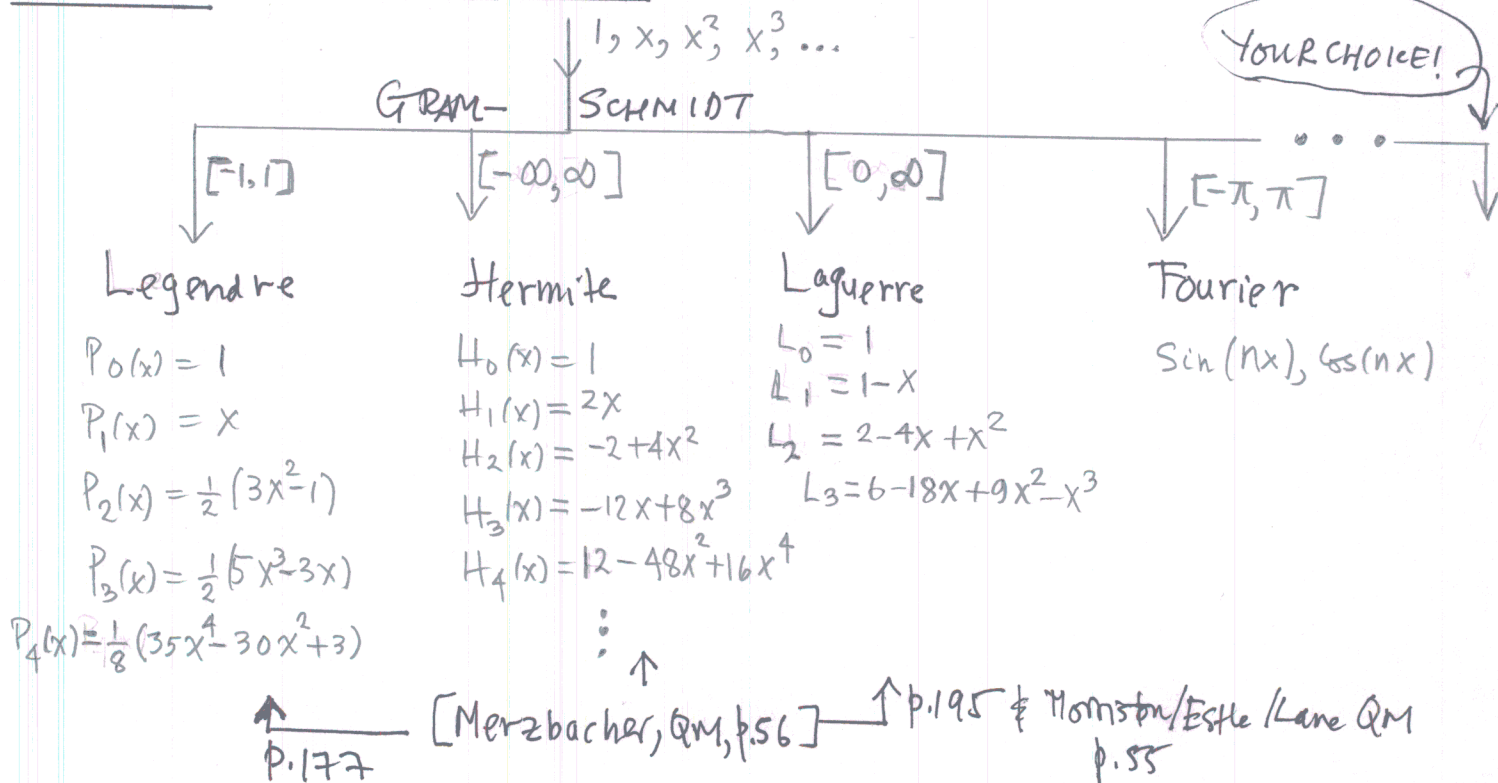 1, x, x², x³, ...
YOUR CHOICE!
GRAM- SCHMIDT
[-1,1]
[-∞,∞]
[0,∞]
[-π, π]
• • •
Legendre
P₀(x) = 1
P₁(x) = x
P₂(x) = ½(3x²-1)
P₃(x) = ½(5x³-3x)
P₄(x) = ⅛(35x⁴-30x²+3)
Hermite
H₀(x) = 1
H₁(x) = 2x
H₂(x) = -2+4x²
H₃(x) = -12x+8x³
H₄(x) = 12-48x²+16x⁴
⋮
Laguerre
L₀ = 1
L₁ = 1-x
L₂ = 2-4x+x²
L₃ = 6-18x+9x²-x³
Fourier
Sin(nx), Cos(nx)
[Merzbacher, QM, p.56]
p.177
p.195 & /Estle/Lane QM
p.55